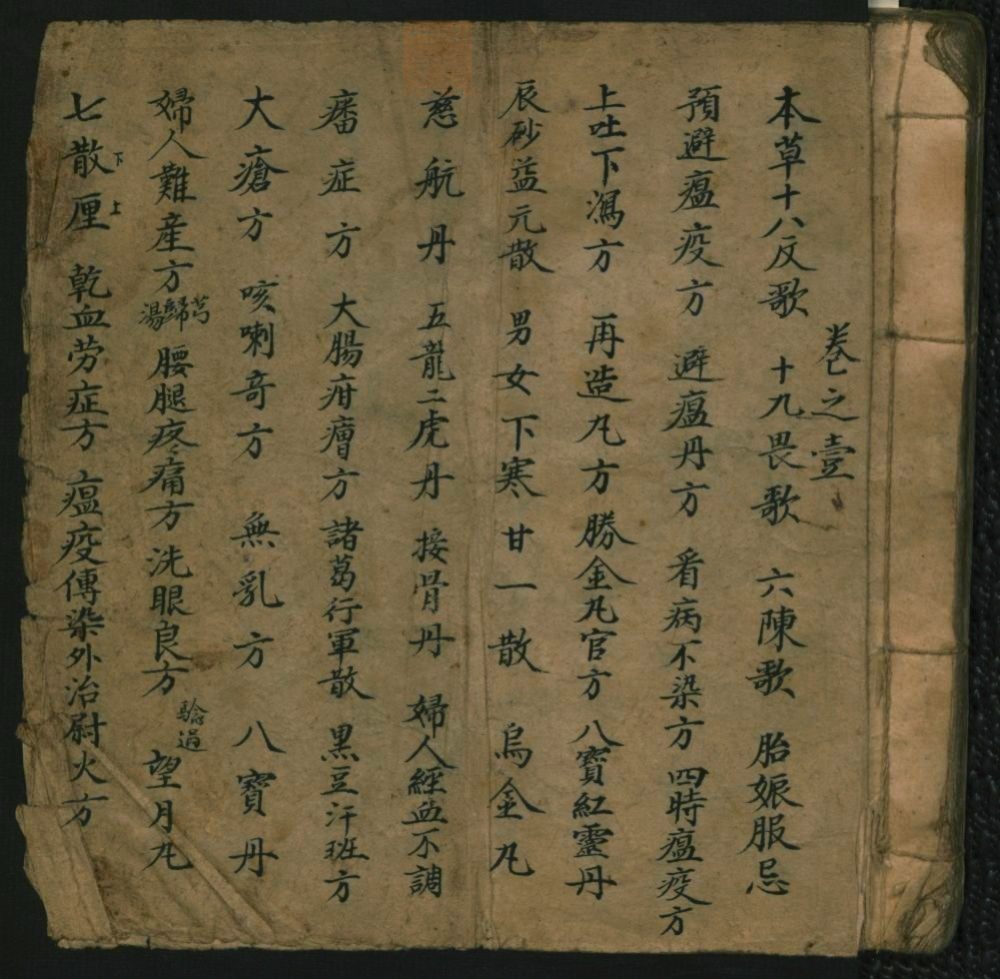 卷之壹
本草十八反歌 十九畏歌 六陳歌 胎娠服忌
預避瘟疫方 避瘟丹方 看病不染方 四時瘟疫方
上吐下瀉方 再造凡方 勝金凡官方 八寶紅靈丹
辰砂益元散 男女下寒 甘一散 烏金凡
慈航丹 五龍二虎丹 接骨丹 婦人經血不調
痧症方 大腸疳瘡方 諸葛行軍散 黑豆汗班方
大瘡方 咳喇奇方 無乳方 八寶丹
婦人難產方 芎歸湯 腰腿疼痛方 洗眼良方 驗過 望月凡
七散下厘上 乾血劳症方 瘟疫傳染外治尉火方